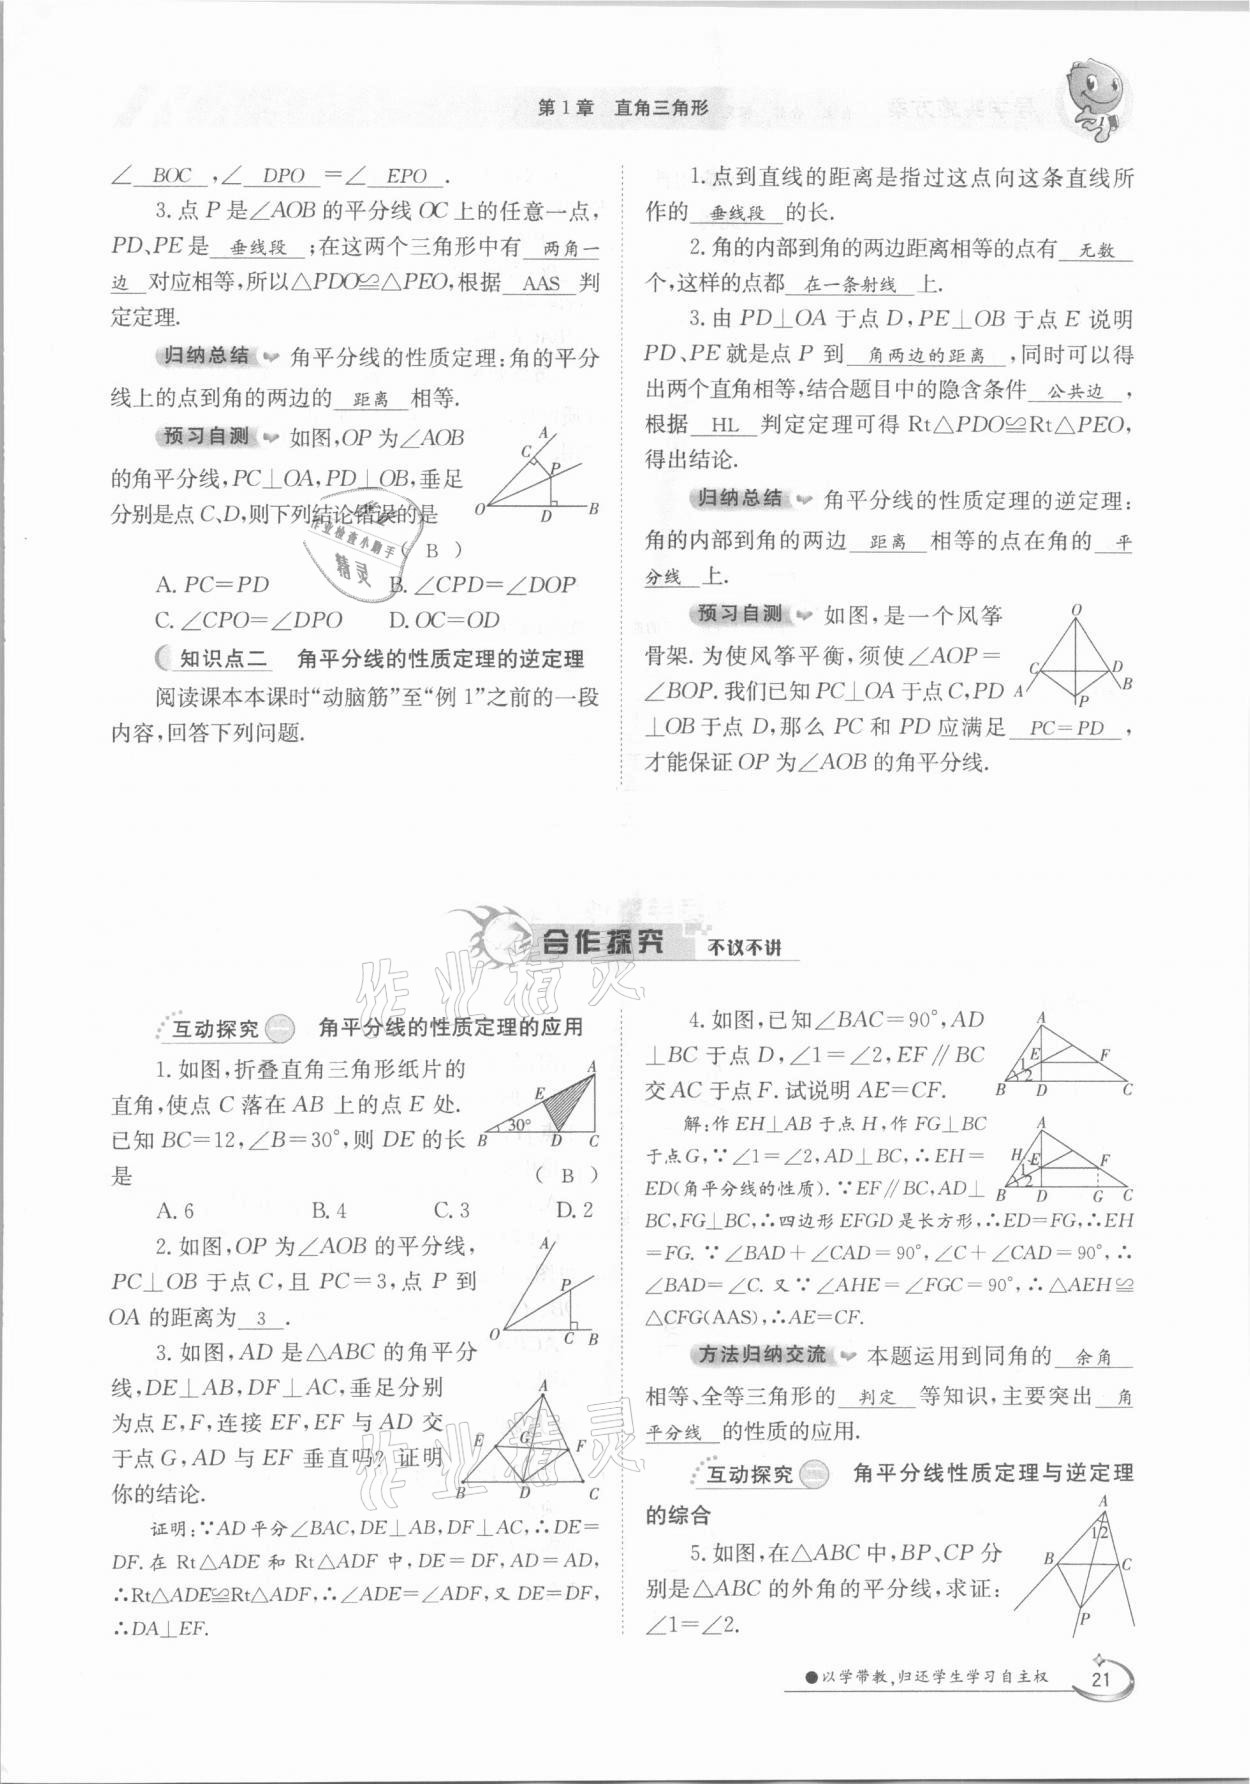 第1章 直角三角形
∠ BOC ,∠ DPO =∠ EPO .
3.点P是∠AOB的平分线OC上的任意一点,
PD、PE是 垂线段 ;在这两个三角形中有 两角一
边 对应相等,所以△PDO≌△PEO,根据 AAS 判
定定理.
归纳总结 角平分线的性质定理:角的平分
线上的点到角的两边的 距离 相等.
预习自测 如图,OP为∠AOB
的角平分线,PC⊥OA,PD⊥OB,垂足
分别是点C、D,则下列结论错误的是
( B )
A
C
P
O
D
B
A.PC=PD B.∠CPD=∠DOP
C.∠CPO=∠DPO D.OC=OD
知识点二 角平分线的性质定理的逆定理
阅读课本本课时“动脑筋”至“例1”之前的一段
内容,回答下列问题.
1.点到直线的距离是指过这点向这条直线所
作的 垂线段 的长.
2.角的内部到角的两边距离相等的点有 无数
个,这样的点都 在一条射线 上.
3.由PD⊥OA于点D,PE⊥OB于点E说明
PD、PE就是点P到 角两边的距离 ,同时可以得
出两个直角相等,结合题目中的隐含条件 公共边 ,
根据 HL 判定定理可得Rt△PDO≌Rt△PEO,
得出结论.
归纳总结 角平分线的性质定理的逆定理:
角的内部到角的两边 距离 相等的点在角的 平
分线 上.
预习自测 如图,是一个风筝
骨架.为使风筝平衡,须使∠AOP=
∠BOP.我们已知PC⊥OA于点C,PD
⊥OB于点D,那么PC和PD应满足 PC=PD ,
才能保证OP为∠AOB的角平分线.
O
C
D
A
P
B
合作探究 不议不讲
互动探究一 角平分线的性质定理的应用
1.如图,折叠直角三角形纸片的
直角,使点C落在AB上的点E处.
已知BC=12,∠B=30°,则DE的长
是 ( B )
A
E
30°
B
D
C
A.6 B.4 C.3 D.2
2.如图,OP为∠AOB的平分线,
PC⊥OB于点C,且PC=3,点P到
OA的距离为 3 .
A
P
O
C
B
3.如图,AD是△ABC的角平分
线,DE⊥AB,DF⊥AC,垂足分别
为点E,F,连接EF,EF与AD交
于点G,AD与EF垂直吗?证明
你的结论.
A
E
G
F
B
D
C
证明:∵AD平分∠BAC,DE⊥AB,DF⊥AC,∴DE=
DF.在Rt△ADE和Rt△ADF中,DE=DF,AD=AD,
∴Rt△ADE≌Rt△ADF,∴∠ADE=∠ADF,又DE=DF,
∴DA⊥EF.
4.如图,已知∠BAC=90°,AD
⊥BC于点D,∠1=∠2,EF∥BC
交AC于点F.试说明AE=CF.
A
E
F
1
2
B
D
C
解:作EH⊥AB于点H,作FG⊥BC
于点G,∵∠1=∠2,AD⊥BC,∴EH=
ED(角平分线的性质).∵EF∥BC,AD⊥
BC,FG⊥BC,∴四边形EFGD是长方形,∴ED=FG,∴EH
=FG.∵∠BAD+∠CAD=90°,∠C+∠CAD=90°,∴
∠BAD=∠C.又∵∠AHE=∠FGC=90°,∴△AEH≌
△CFG(AAS),∴AE=CF.
A
H
E
F
1
2
B
D
G
C
方法归纳交流 本题运用到同角的 余角
相等、全等三角形的 判定 等知识,主要突出 角
平分线 的性质的应用.
互动探究二 角平分线性质定理与逆定理
的综合
5.如图,在△ABC中,BP、CP分
别是△ABC的外角的平分线,求证:
∠1=∠2.
A
12
B
C
P
●以学带教,归还学生学习自主权 21
作业检查小助手
精灵
作业精灵
作业精灵